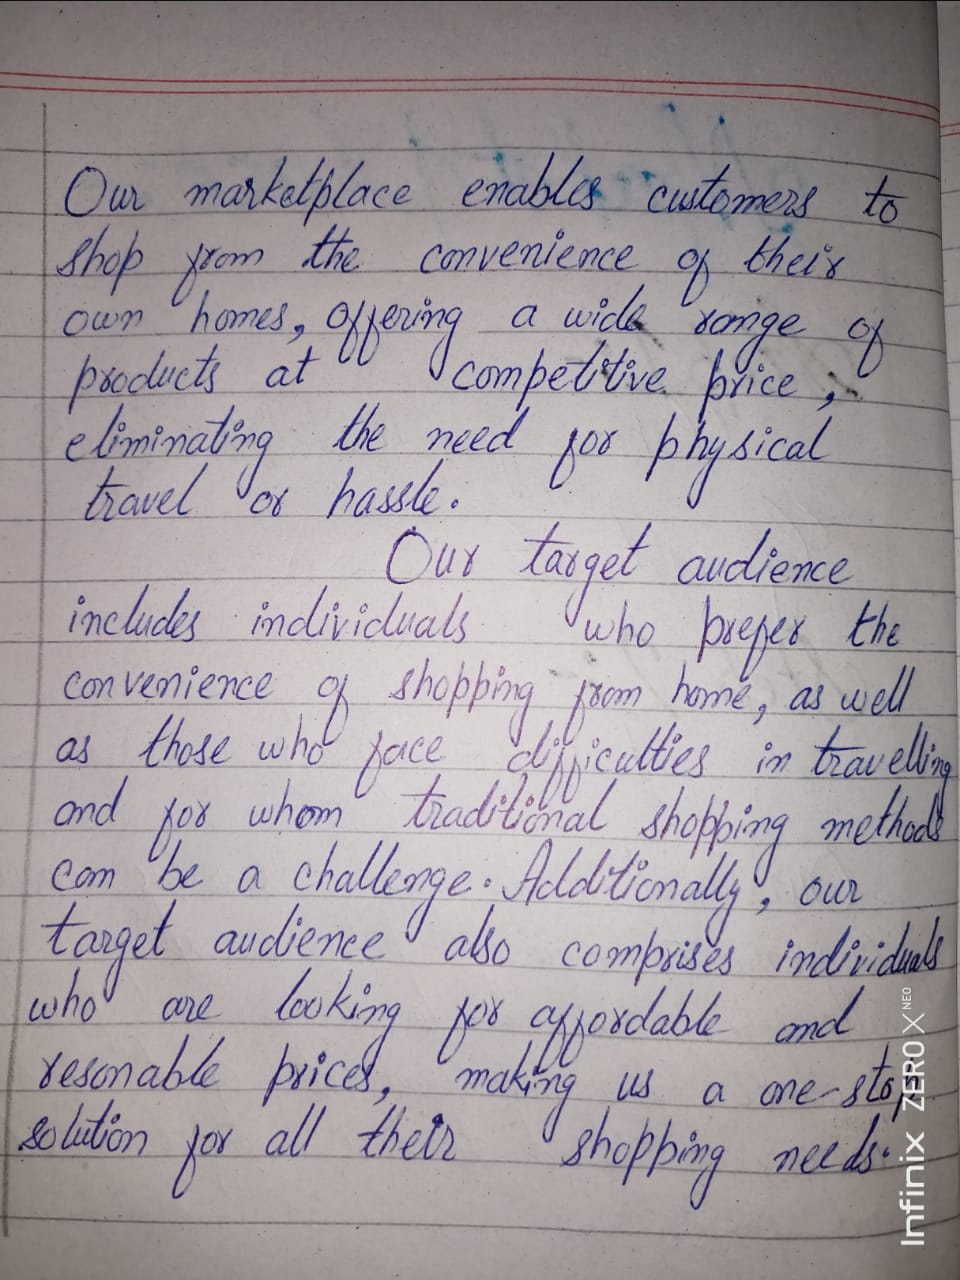 Our marketplace enables customers to
shop from the convenience of their
own homes, offering a wide range of
products at competitive price,
eliminating the need for physical
travel or hassle.
Our target audience
includes individuals who prefer the
convenience of shopping from home, as well
as those who face difficulties in travelling
and for whom traditional shopping methods
can be a challenge. Additionally, our
target audience also comprises individuals
who are looking for affordable and
resonable prices, making us a one-stop
solution for all their shopping needs.
Infinix ZERO X NEO